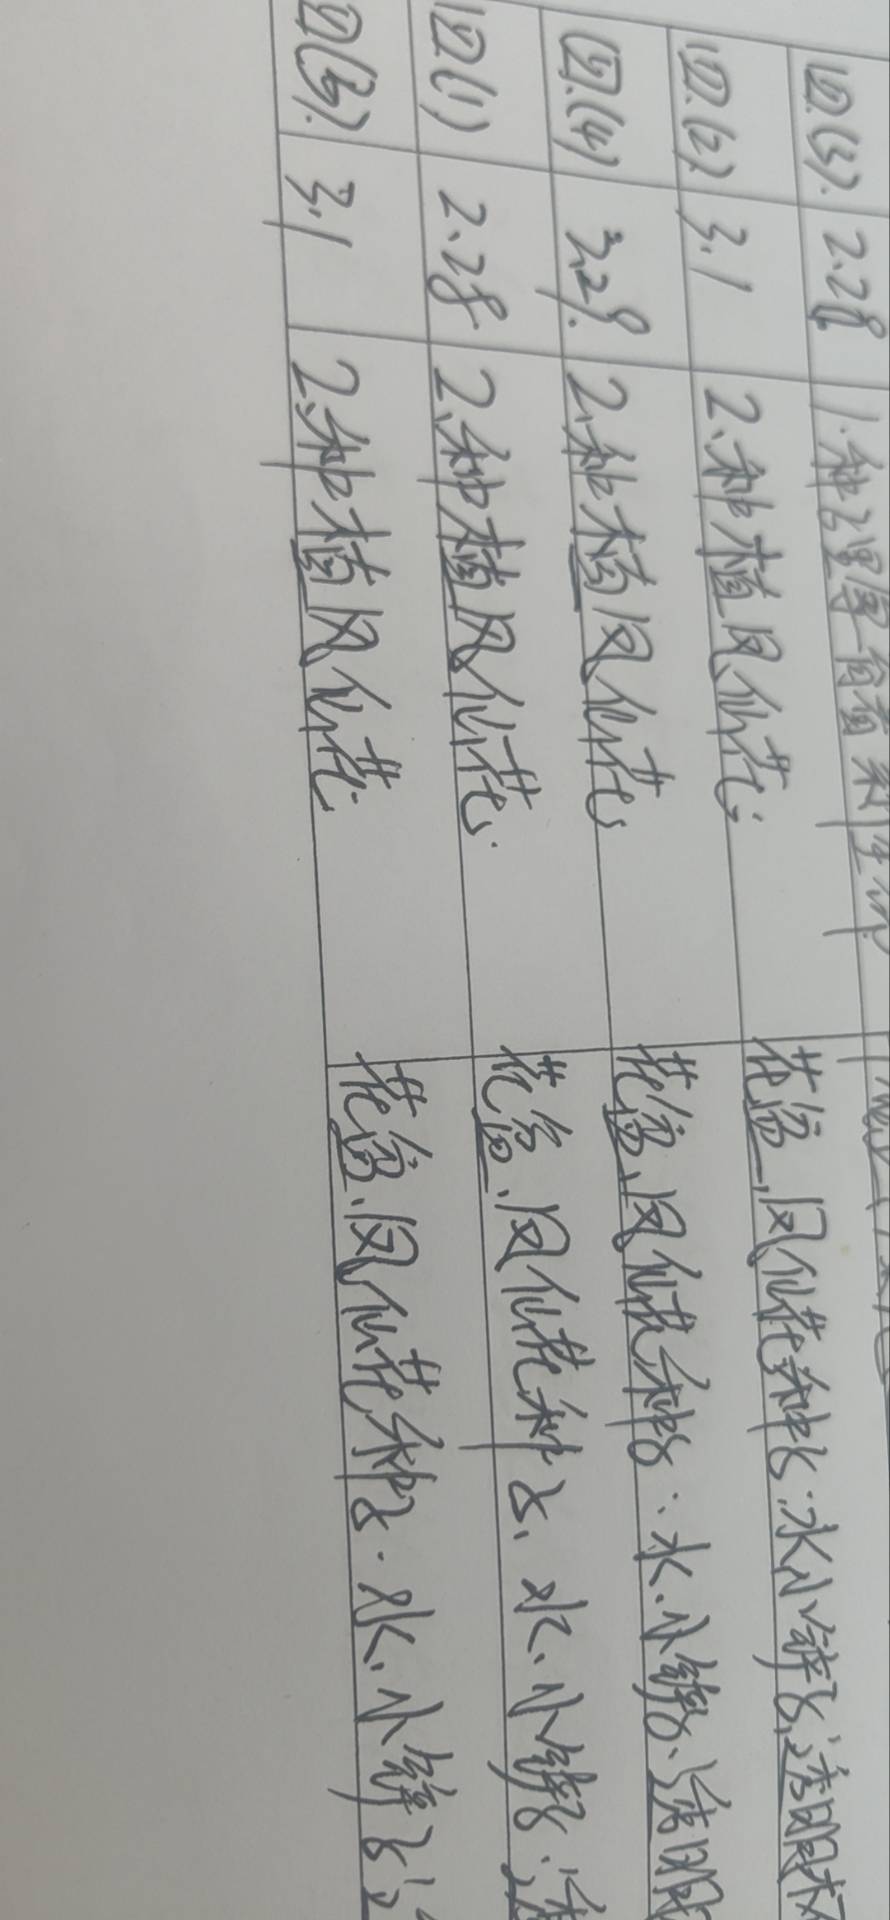 四(3). 2.28 1.种子里孕育着新生命
四(2) 3.1 2、种植凤仙花. 花盆、凤仙花种子.水、小铲子、透明
四(4) 3.28. 2、种植凤仙花 花盆、凤仙花种子、水、小铲子、透明
四(1) 2.28 2、种植凤仙花. 花盆、凤仙花种子、水、小铲子、透
四(3). 3.1 2、种植凤仙花 花盆、凤仙花种子.水、小铲子